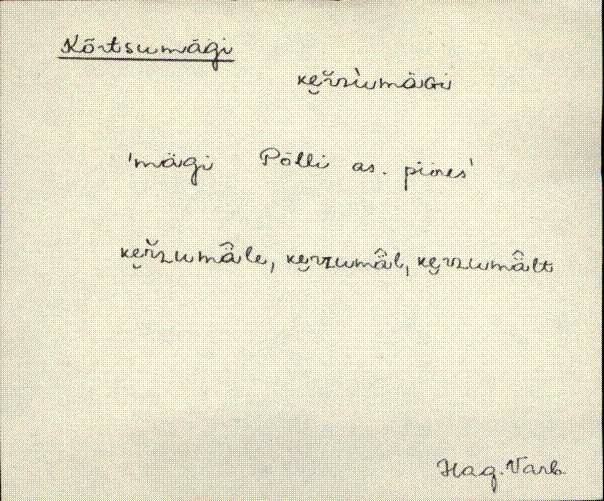 Kõrtsumägi
ke̮řzùmäɢi
'mägi Põlli as. piires'
ke̮řzumä̂le, ke̮rzumä̂l, ke̮rzumä̂lt
Hag. Varb.